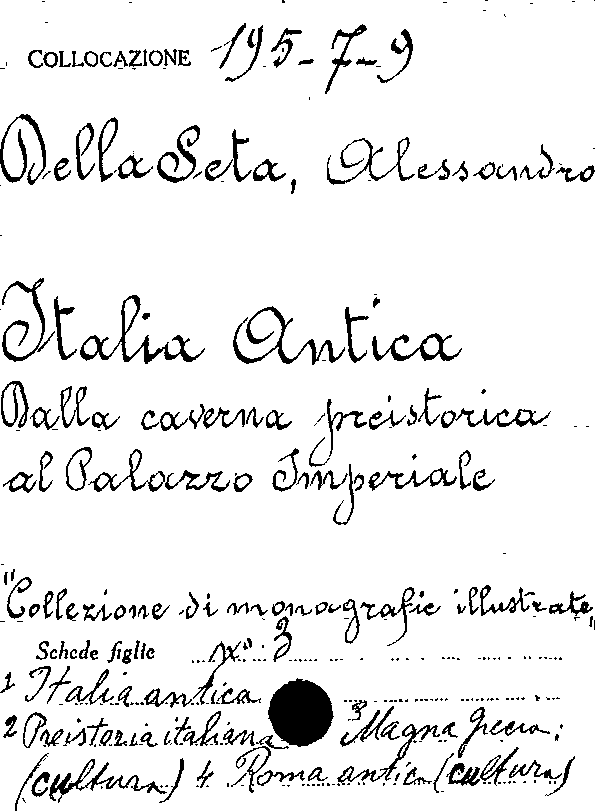 COLLOCAZIONE 195-7-9
Della Seta, Alessandro
Italia Antica
Dalla caverna preistorica
al Palazzo Imperiale
"Collezione di monografie illustrate"
Schede figlie n° 3
1 Italia antica
2 Preistoria italiana 3 Magna Grecia:
(cultura) 4 Roma antica (cultura)